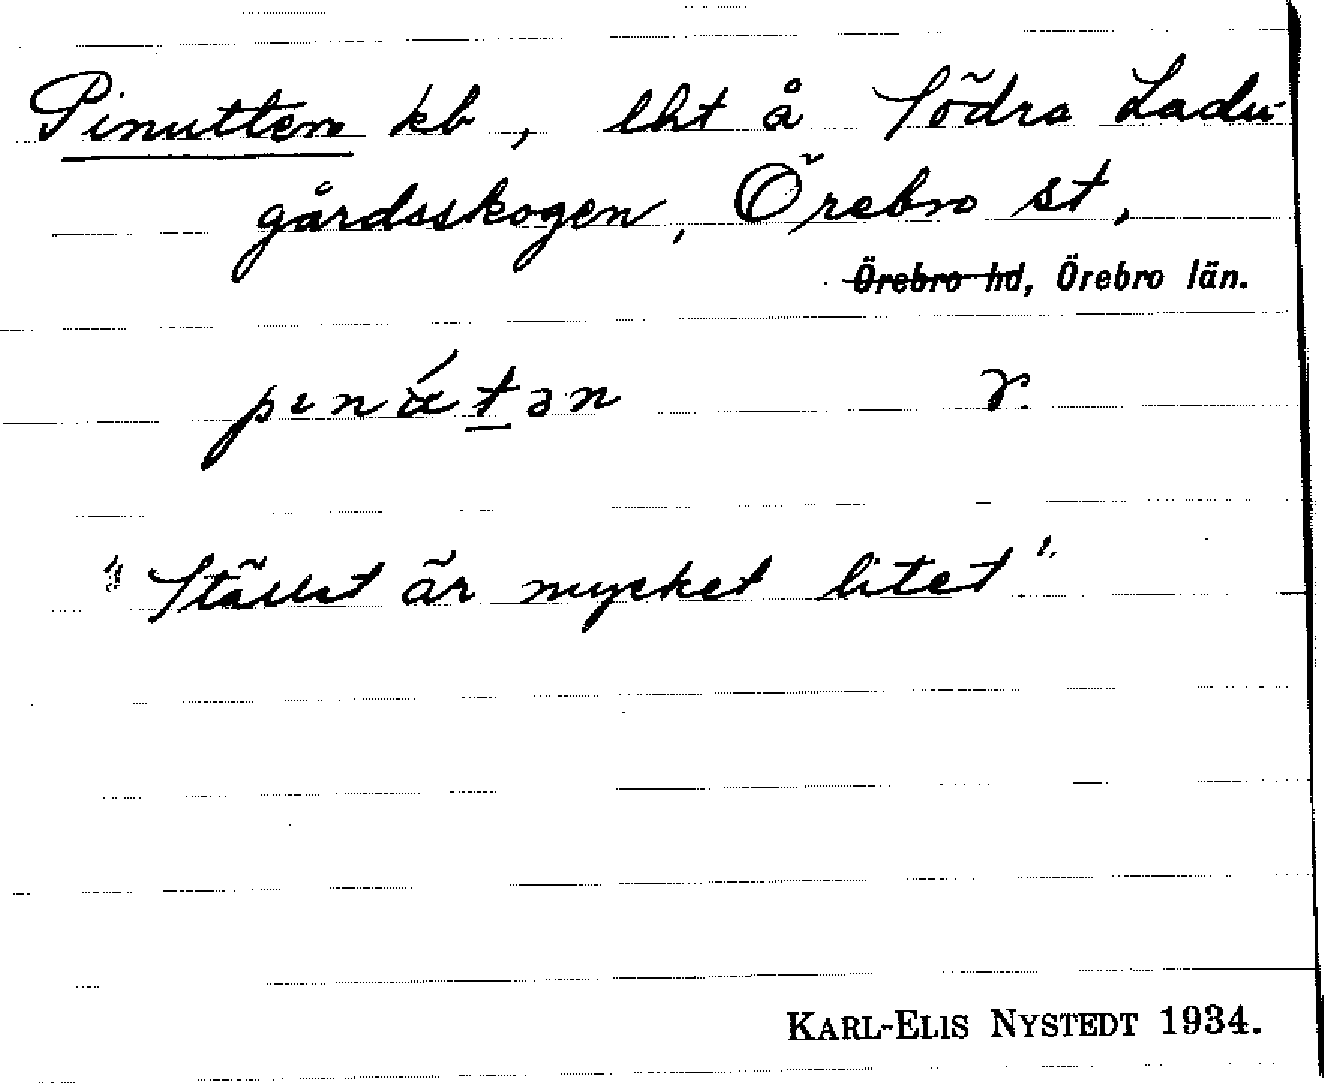 Pinutten kb, lht å Södra Ladu-
gårdsskogen, Örebro st,
Örebro hd, Örebro län.
pınǽtən r.
"Stället är mycket litet"
KARL-ELIS NYSTEDT 1934.